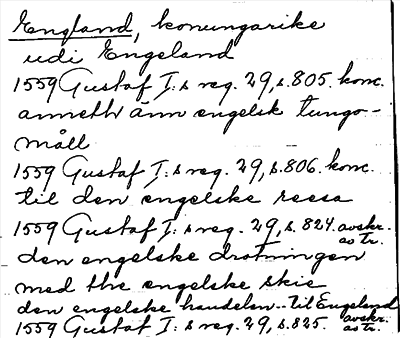 England, konungarike
udi Engeland
1559 Gustaf I:s reg. 29, s. 805. konc.
anneth änn engelsk tungo-
måll
1559 Gustaf I:s reg. 29, s. 806. konc.
til den engelske reesa
1559 Gustaf I:s reg. 29, s. 824. avskr. av tr.
den engelske drotningen
med the engelske skie
den engelske handelen .. til Engeland
1559 Gustaf I:s reg. 29, s. 825. avskr. av tr.